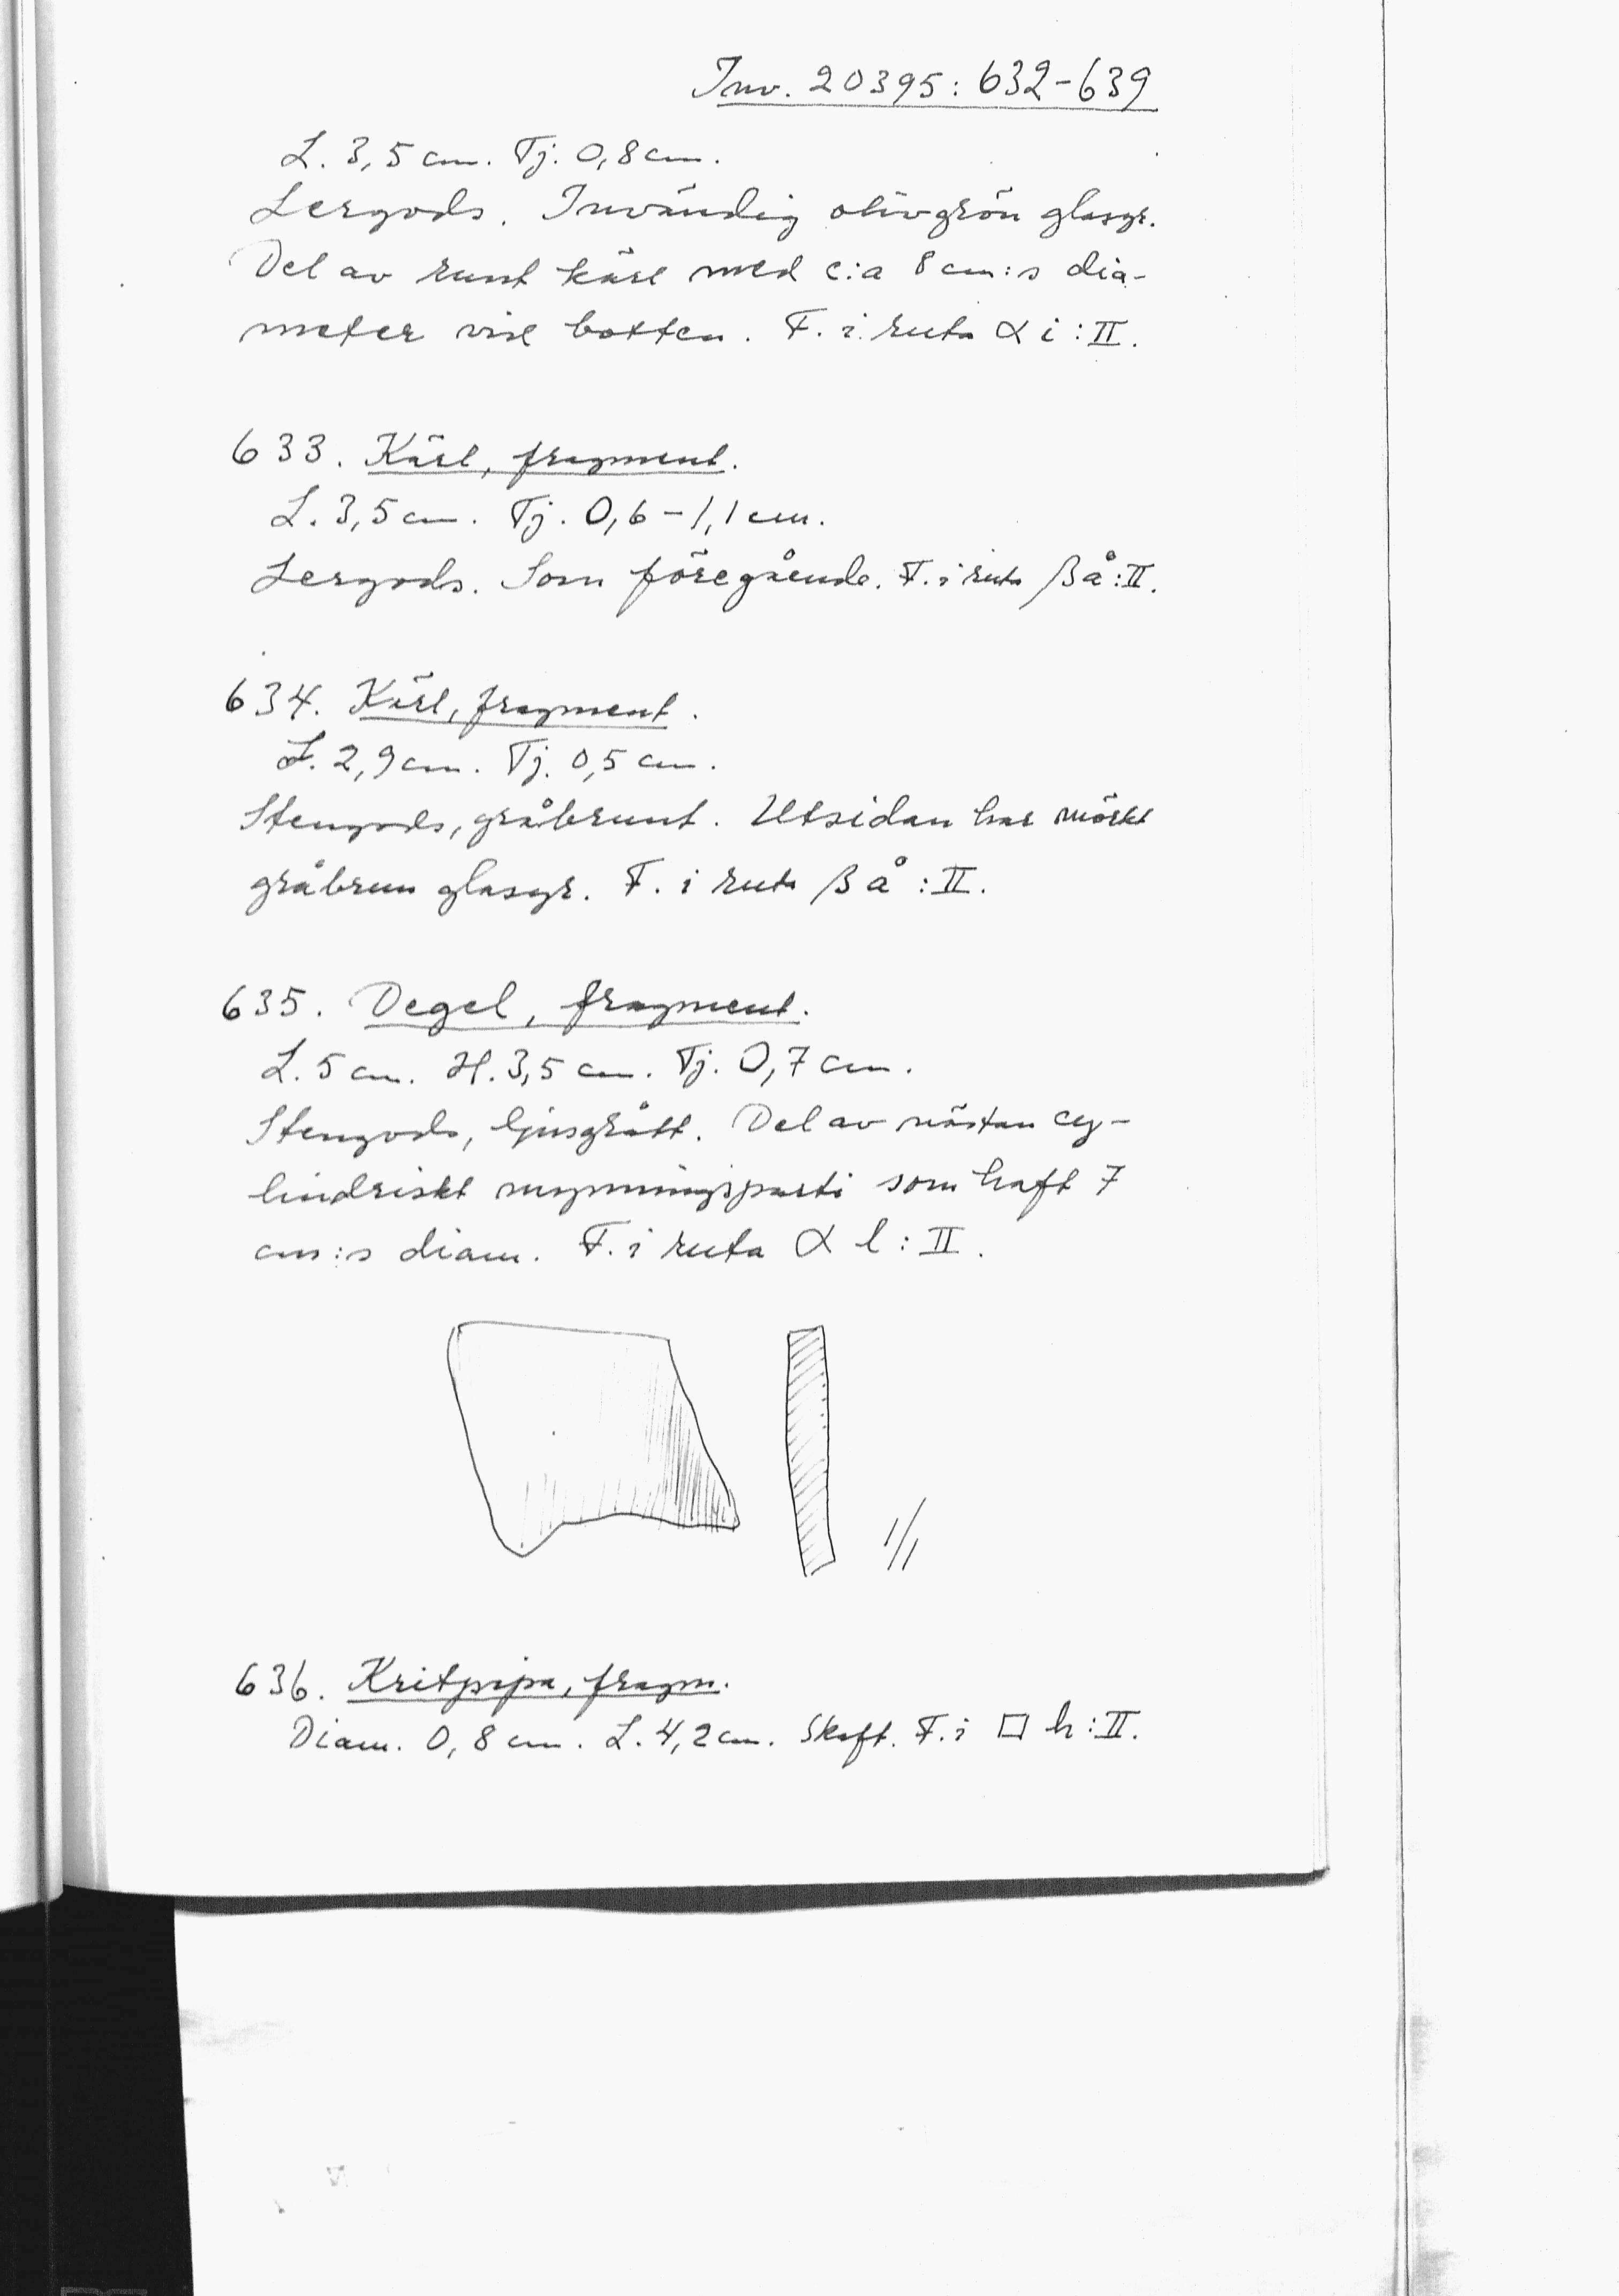 Inv. 20395: 632-639
L. 3,5 cm. Tj. 0,8 cm.
Lergods. Invändig olivgrön glasyr.
Del av runt kärl med c:a 8 cm:s dia-
meter vid botten. F. i ruta α i : II.
633. Kärl, fragment.
L. 3,5 cm. Tj. 0,6 - 1,1 cm.
Lergods. Som föregående. F. i ruta β å : II.
634. Kärl, fragment.
L. 2,9 cm. Tj. 0,5 cm.
Stengods, gråbrunt. Utsidan har mörkt
gråbrun glasyr. F. i ruta β å : II.
635. Degel, fragment.
L. 5 cm. H. 3,5 cm. Tj. 0,7 cm.
Stengods, ljusgrått. Del av nästan cy-
lindriskt mynningsparti som haft 7
cm:s diam. F. i ruta α l : II.
1/1
636. Kritpipa, fragm.
Diam. 0,8 cm. L. 4,2 cm. Skaft. F. i □ h : II.